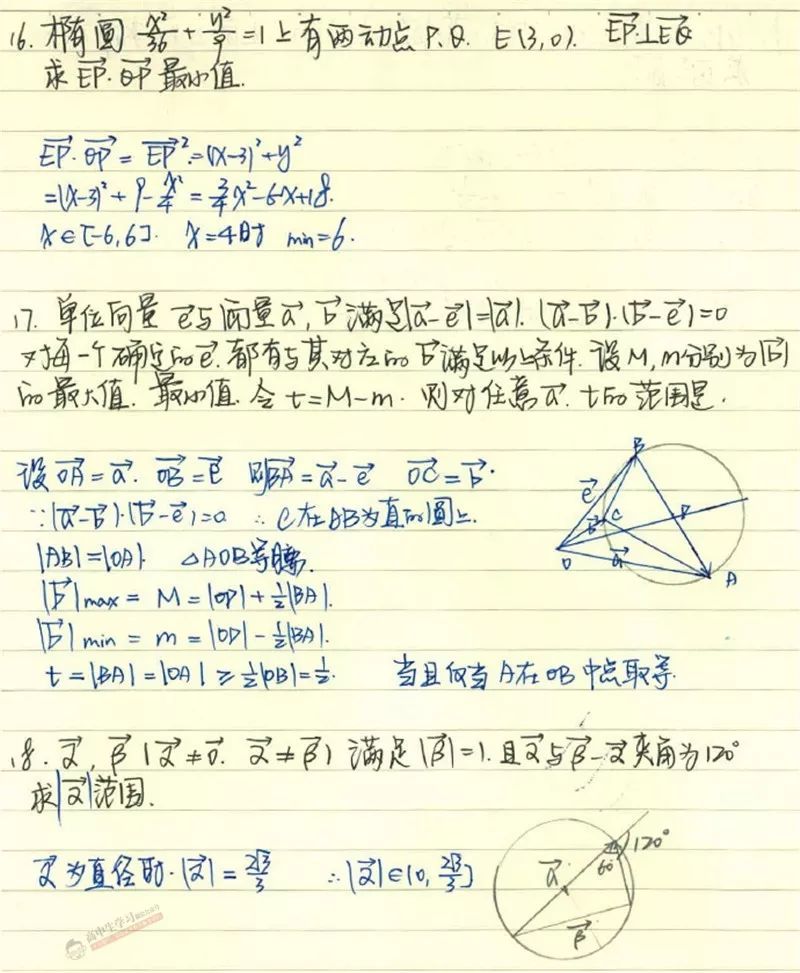 16. 椭圆 x²/36 + y²/9 = 1 上有两动点 P、Q. E(3,0). EP⃗⊥EQ⃗
求 EP⃗·QP⃗ 最小值.
EP⃗·QP⃗ = EP⃗² = (x-3)²+y²
=(x-3)²+9-x²/4 = 3/4x²-6x+18.
x∈[-6,6]. x=4时 min=6.
17. 单位向量 e⃗与向量a⃗, b⃗满足|a⃗-e⃗|=|a⃗|. (a⃗-b⃗)·(b⃗-e⃗)=0
对每一个确定的e⃗. 都有与其对应的b⃗满足以上条件. 设M, m分别为|b⃗|
的最大值. 最小值. 令 t=M-m. 则对任意a⃗. t的范围是.
设OA⃗=a⃗. OB⃗=e⃗ 则BA⃗=a⃗-e⃗ OC⃗=b⃗.
∵(a⃗-b⃗)·(b⃗-e⃗)=0 ∴C在AB为直的圆上.
|AB|=|OA|. △AOB等腰.
|b⃗|max = M = |OD|+½|BA|.
|b⃗|min = m = |OD|-½|BA|.
t=|BA|=|OA|≥½|OB|=½. 当且仅当A在OB中点取等.
B
e⃗
b⃗
C
D
O
a⃗
A
18. α⃗, β⃗ (α⃗≠0⃗. α⃗≠β⃗) 满足|β⃗|=1. 且α⃗与β⃗-α⃗夹角为120°
求|α⃗|范围.
α⃗为直径时. |α⃗|=2√3/3 ∴|α⃗|∈(0, 2√3/3]
120°
60°
α⃗
β⃗
高中生学习